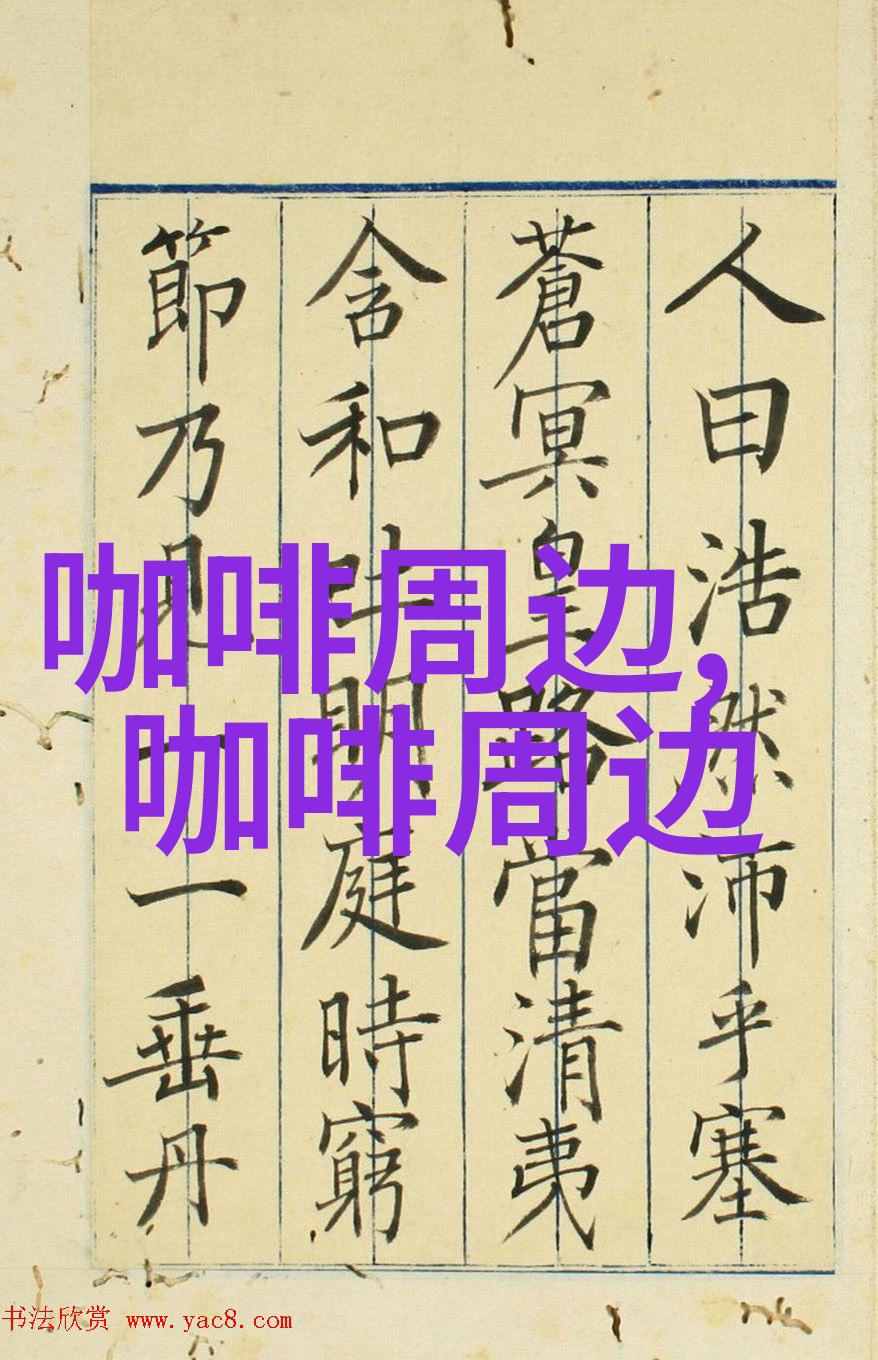 咖啡周边,
咖啡周边
人曰浩然沛乎塞
蒼冥皇路當清夷
含和吐明庭時窮
節乃見一一垂丹
书法欣赏 www.yac8.com